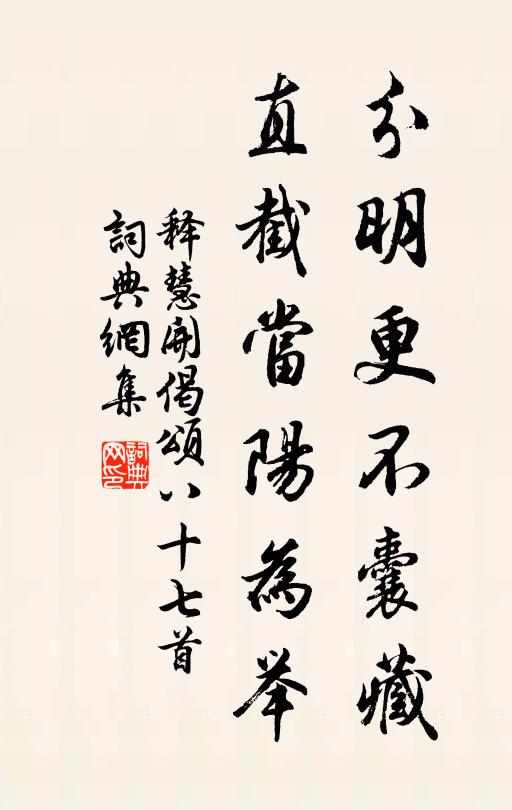 分明更不囊藏
直截當陽為举
释慧開偈頌八十七首
詞典網集
詞典
网印